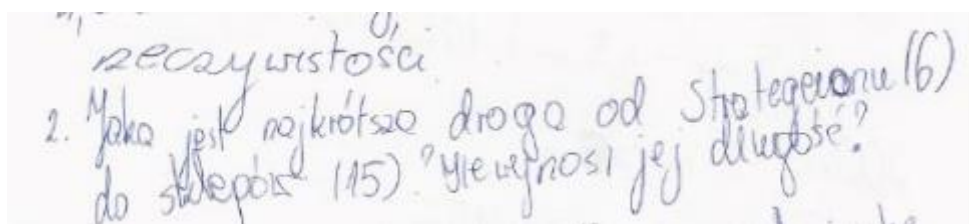 rzeczywistości.
2. Jaka jest najkrótsza droga od Strategeionu (6)
do sklepów (15)? Ile wynosi jej długość?